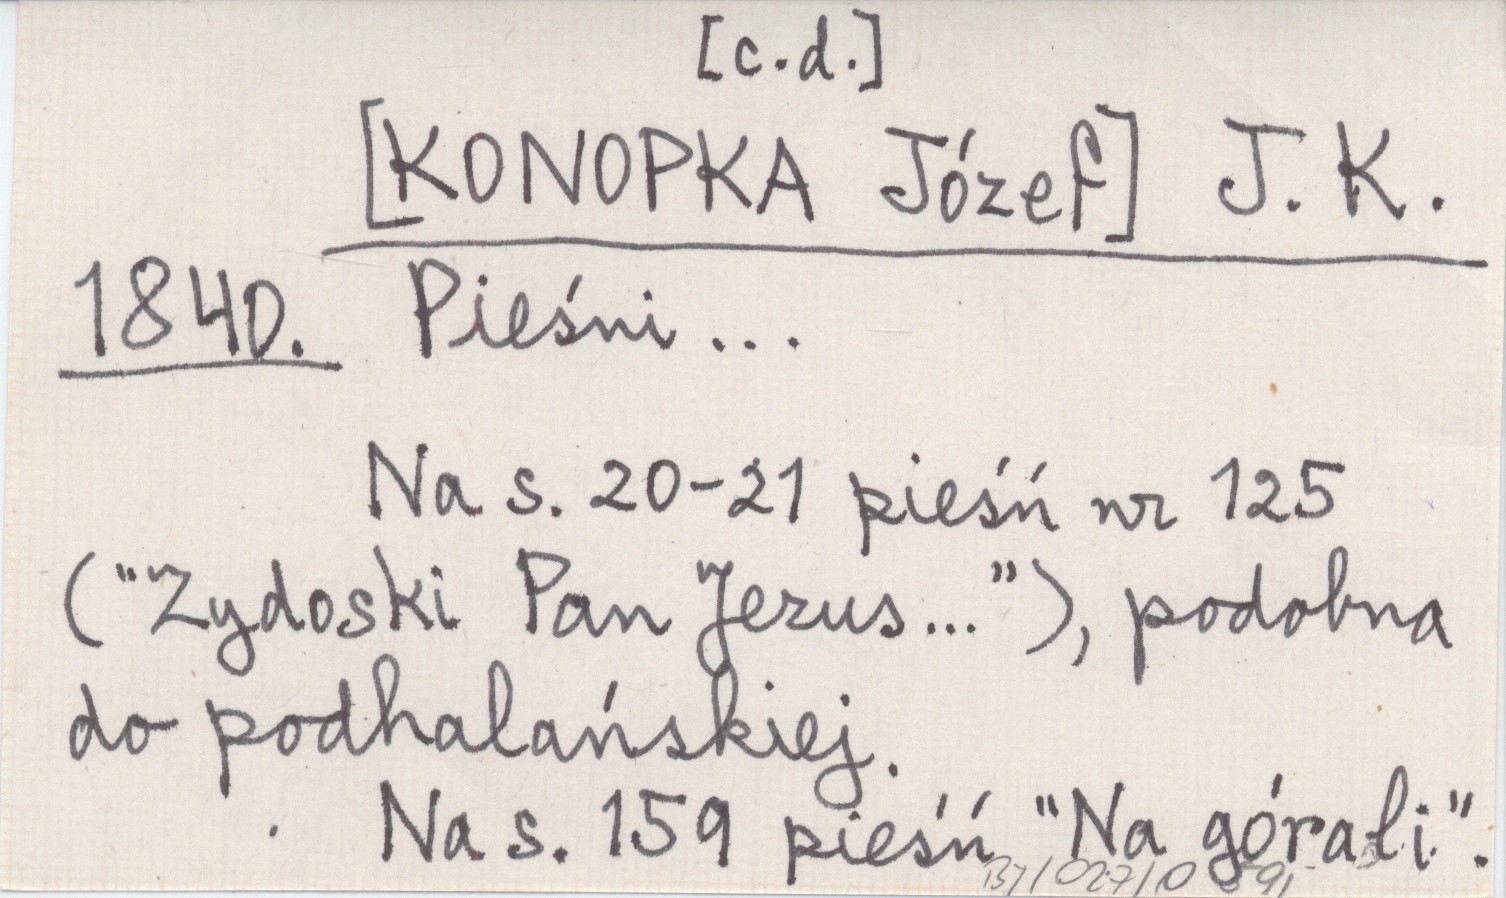 [c.d.]
[KONOPKA Józef] J. K.
1840. Pieśni...
Na s. 20-21 pieśń nr 125
("Zydoski Pan Jezus..."), podobna
do podhalańskiej.
Na s. 159 pieśń "Na górali".